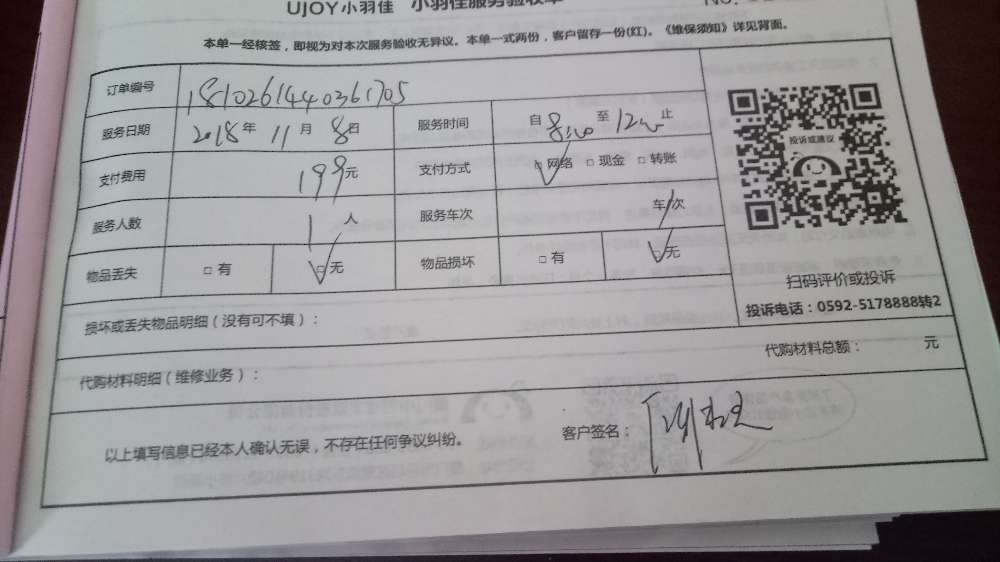 UJOY小羽佳 小羽佳服务验收单
No.
本单一经核签，即视为对本次服务验收无异议。本单一式两份，客户留存一份(红)。《维保须知》详见背面。
订单编号 1810261440361705
服务日期 2018年 11月 8日 服务时间 自 8:00 至 12:00 止
支付费用 199元 支付方式 ☑网络 □现金 □转账
服务人数 1人 服务车次 车/次
物品丢失 □有 ☑无 物品损坏 □有 ☑无
投诉或建议
扫码评价或投诉
投诉电话：0592-5178888转2
损坏或丢失物品明细（没有可不填）：
代购材料明细（维修业务）： 代购材料总额： 元
以上填写信息已经本人确认无误，不存在任何争议纠纷。 客户签名：